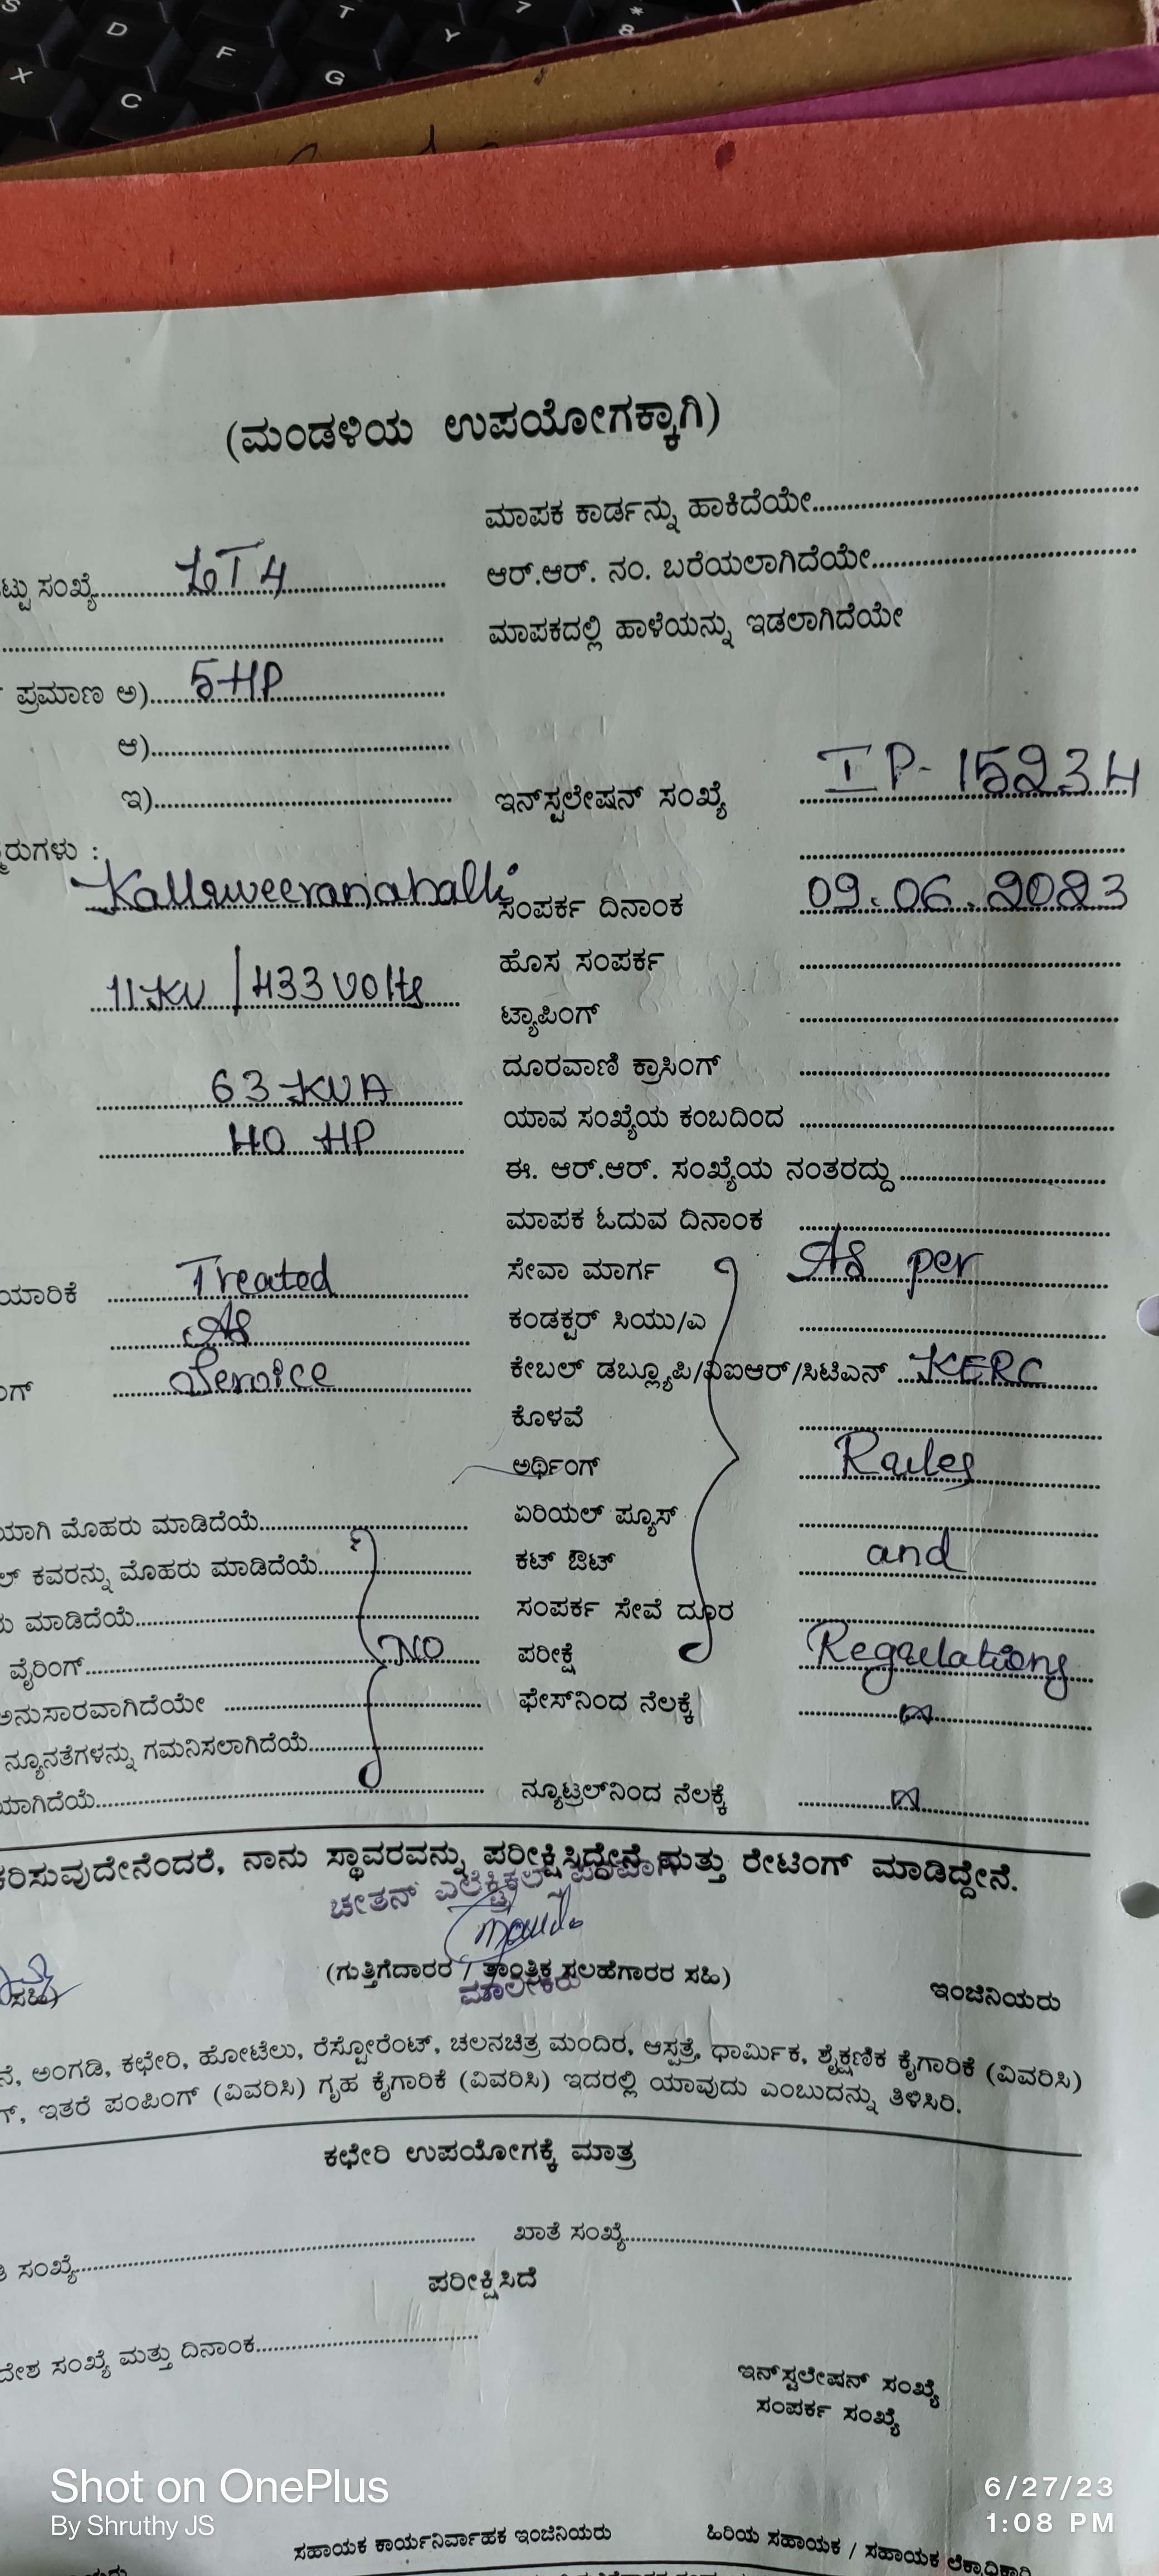 (ಮಂಡಳಿಯ ಉಪಯೋಗಕ್ಕಾಗಿ)
ಮಾಪಕ ಕಾರ್ಡನ್ನು ಹಾಕಿದೆಯೇ
ಟ್ಟು ಸಂಖ್ಯೆ LT4 ಆರ್.ಆರ್. ನಂ. ಬರೆಯಲಾಗಿದೆಯೇ
ಮಾಪಕದಲ್ಲಿ ಹಾಳೆಯನ್ನು ಇಡಲಾಗಿದೆಯೇ
ಪ್ರಮಾಣ ಅ) 5 HP
ಆ)
ಇ) ಇನ್‌ಸ್ಟಲೇಷನ್ ಸಂಖ್ಯೆ IP-15234
ರುಗಳು :
Kallaweeranahalli ಸಂಪರ್ಕ ದಿನಾಂಕ 09.06.2023
ಹೊಸ ಸಂಪರ್ಕ
11KV / 433 Volts ಟ್ಯಾಪಿಂಗ್
ದೂರವಾಣಿ ಕ್ರಾಸಿಂಗ್
63 KVA ಯಾವ ಸಂಖ್ಯೆಯ ಕಂಬದಿಂದ
40 HP ಈ. ಆರ್.ಆರ್. ಸಂಖ್ಯೆಯ ನಂತರದ್ದು
ಮಾಪಕ ಓದುವ ದಿನಾಂಕ
ಯಾರಿಕೆ Treated ಸೇವಾ ಮಾರ್ಗ As per
As ಕಂಡಕ್ಟರ್ ಸಿಯು/ಎ
ಗ್ Service ಕೇಬಲ್ ಡಬ್ಲ್ಯೂಪಿ/ವಿಐಆರ್/ಸಿಟಿಎನ್ KERC
ಕೊಳವೆ
ಅರ್ಥಿಂಗ್ Rules
ಯಾಗಿ ಮೊಹರು ಮಾಡಿದೆಯೆ ಏರಿಯಲ್ ಫ್ಯೂಸ್
ಲ್ ಕವರನ್ನು ಮೊಹರು ಮಾಡಿದೆಯೆ ಕಟ್ ಔಟ್ and
ರು ಮಾಡಿದೆಯೆ ಸಂಪರ್ಕ ಸೇವೆ ದೂರ
ವೈರಿಂಗ್ NO ಪರೀಕ್ಷೆ Regulations
ಅನುಸಾರವಾಗಿದೆಯೇ ಫೇಸ್‌ನಿಂದ ನೆಲಕ್ಕೆ
ನ್ಯೂನತೆಗಳನ್ನು ಗಮನಿಸಲಾಗಿದೆಯೆ
ಯಾಗಿದೆಯೆ ನ್ಯೂಟ್ರಲ್‌ನಿಂದ ನೆಲಕ್ಕೆ
ಕರಿಸುವುದೇನೆಂದರೆ, ನಾನು ಸ್ಥಾವರವನ್ನು ಪರೀಕ್ಷಿಸಿದ್ದೇನೆ ಮತ್ತು ರೇಟಿಂಗ್ ಮಾಡಿದ್ದೇನೆ.
ಚೇತನ್ ಎಲೆಕ್ಟ್ರಿಕಲ್
ಸಹಿ) (ಗುತ್ತಿಗೆದಾರರ / ತಾಂತ್ರಿಕ ಸಲಹೆಗಾರರ ಸಹಿ) ಇಂಜಿನಿಯರು
ಮಾಲೀಕರು
ನೆ, ಅಂಗಡಿ, ಕಛೇರಿ, ಹೋಟೆಲು, ರೆಸ್ಟೋರೆಂಟ್, ಚಲನಚಿತ್ರ ಮಂದಿರ, ಆಸ್ಪತ್ರೆ, ಧಾರ್ಮಿಕ, ಶೈಕ್ಷಣಿಕ ಕೈಗಾರಿಕೆ (ವಿವರಿಸಿ)
ಗ್, ಇತರೆ ಪಂಪಿಂಗ್ (ವಿವರಿಸಿ) ಗೃಹ ಕೈಗಾರಿಕೆ (ವಿವರಿಸಿ) ಇದರಲ್ಲಿ ಯಾವುದು ಎಂಬುದನ್ನು ತಿಳಿಸಿರಿ.
ಕಛೇರಿ ಉಪಯೋಗಕ್ಕೆ ಮಾತ್ರ
ಸಂಖ್ಯೆ ಖಾತೆ ಸಂಖ್ಯೆ
ಪರೀಕ್ಷಿಸಿದೆ
ದೇಶ ಸಂಖ್ಯೆ ಮತ್ತು ದಿನಾಂಕ
ಇನ್‌ಸ್ಟಲೇಷನ್ ಸಂಖ್ಯೆ
ಸಂಪರ್ಕ ಸಂಖ್ಯೆ
Shot on OnePlus
By Shruthy JS
6/27/23
1:08 PM
ಸಹಾಯಕ ಕಾರ್ಯನಿರ್ವಾಹಕ ಇಂಜಿನಿಯರು ಹಿರಿಯ ಸಹಾಯಕ / ಸಹಾಯಕ ಲೆಕ್ಕಾಧಿಕಾರಿ